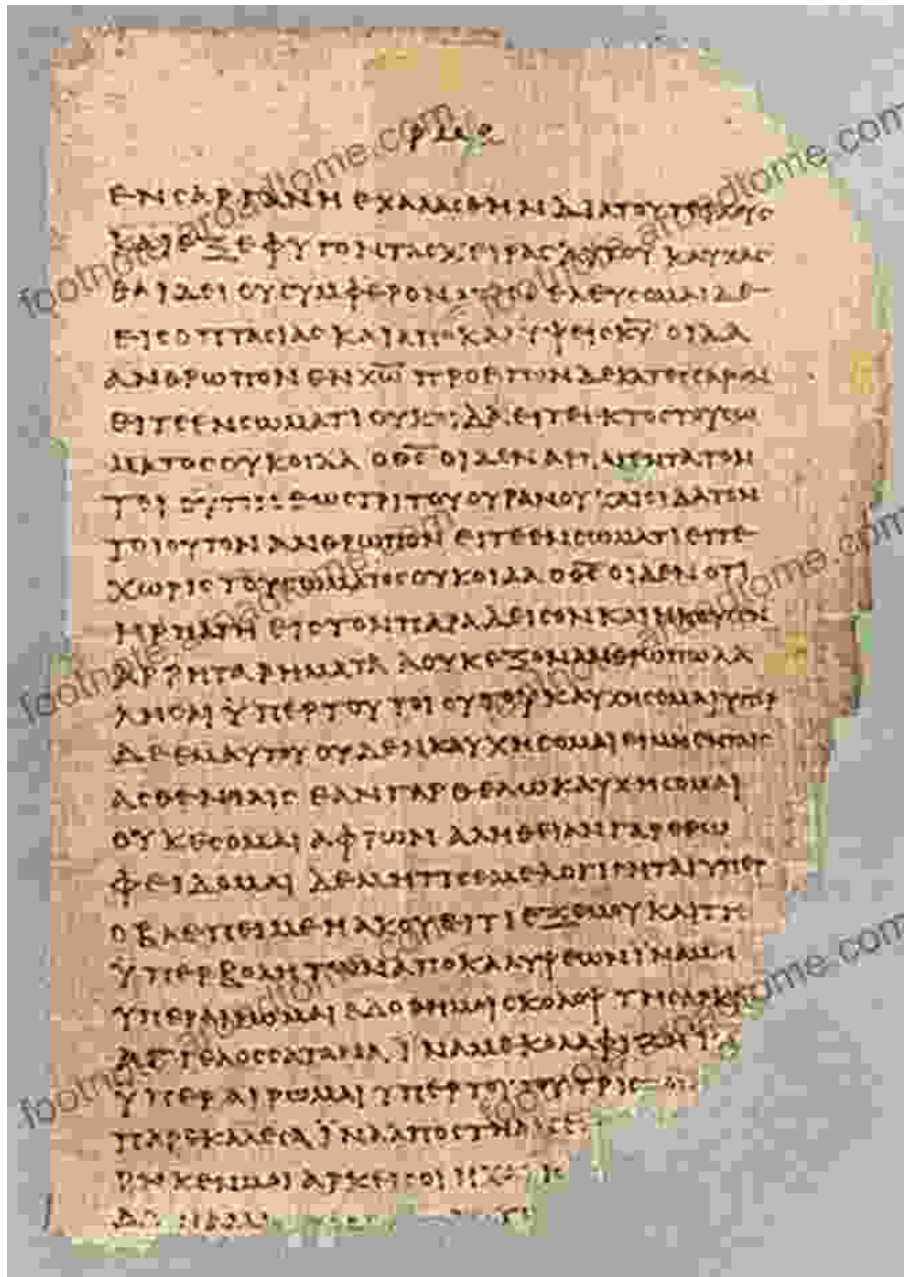 ΕΝ ΣΑΡΓΑΝΗ ΕΧΑΛΑΣΘΗΝ ΔΙΑ ΤΟΥ ΤΕΙΧΟΥΣ
ΚΑΙ ΕΞΕΦΥΓΟΝ ΤΑΣ ΧΕΙΡΑΣ ΑΥΤΟΥ ΚΑΥΧΑΣ
ΘΑΙ ΔΕΙ ΟΥ ΣΥΜΦΕΡΟΝ ΕΛΕΥΣΟΜΑΙ ΔΕ
ΕΙΣ ΟΠΤΑΣΙΑΣ ΚΑΙ ΑΠΟΚΑΛΥΨΕΙΣ Κ̅Υ̅ ΟΙΔΑ
ΑΝΘΡΩΠΟΝ ΕΝ Χ̅Ω̅ ΠΡΟ ΕΤΩΝ ΔΕΚΑΤΕΣΣΑΡΩΝ
ΕΙΤΕ ΕΝ ΣΩΜΑΤΙ ΟΥΚ ΟΙΔΑ ΕΙΤΕ ΕΚΤΟΣ ΤΟΥ ΣΩ
ΜΑΤΟΣ ΟΥΚ ΟΙΔΑ Ο Θ̅Σ̅ ΟΙΔΕΝ ΑΡΠΑΓΕΝΤΑ ΤΟΝ
ΤΟΙΟΥΤΟΝ ΕΩΣ ΤΡΙΤΟΥ ΟΥΡΑΝΟΥ ΚΑΙ ΟΙΔΑ ΤΟΝ
ΤΟΙΟΥΤΟΝ ΑΝΘΡΩΠΟΝ ΕΙΤΕ ΕΝ ΣΩΜΑΤΙ ΕΙΤΕ
ΧΩΡΙΣ ΤΟΥ ΣΩΜΑΤΟΣ ΟΥΚ ΟΙΔΑ Ο Θ̅Σ̅ ΟΙΔΕΝ ΟΤΙ
ΗΡΠΑΓΗ ΕΙΣ ΤΟΝ ΠΑΡΑΔΕΙΣΟΝ ΚΑΙ ΗΚΟΥΣΕΝ
ΑΡΡΗΤΑ ΡΗΜΑΤΑ Α ΟΥΚ ΕΞΟΝ ΑΝΘΡΩΠΩ ΛΑ
ΛΗΣΑΙ ΥΠΕΡ ΤΟΥ ΤΟΙΟΥΤΟΥ ΚΑΥΧΗΣΟΜΑΙ ΥΠΕΡ
ΔΕ ΕΜΑΥΤΟΥ ΟΥΔΕΝ ΚΑΥΧΗΣΟΜΑΙ ΕΙ ΜΗ ΕΝ ΤΑΙΣ
ΑΣΘΕΝΕΙΑΙΣ ΕΑΝ ΓΑΡ ΘΕΛΩ ΚΑΥΧΗΣΟΜΑΙ
ΟΥΚ ΕΣΟΜΑΙ ΑΦΡΩΝ ΑΛΗΘΕΙΑΝ ΓΑΡ ΕΡΩ
ΦΕΙΔΟΜΑΙ ΔΕ ΜΗ ΤΙΣ ΕΜΕ ΛΟΓΙΣΗΤΑΙ ΥΠΕΡ
Ο ΒΛΕΠΕΙ ΜΕ Η ΑΚΟΥΕΙ ΤΙ ΕΞ ΕΜΟΥ ΚΑΙ ΤΗ
ΥΠΕΡΒΟΛΗ ΤΩΝ ΑΠΟΚΑΛΥΨΕΩΝ ΙΝΑ ΜΗ
ΥΠΕΡΑΙΡΩΜΑΙ ΕΔΟΘΗ ΜΟΙ ΣΚΟΛΟΨ ΤΗ ΣΑΡΚΙ
ΑΓΓΕΛΟΣ ΣΑΤΑΝΑ ΙΝΑ ΜΕ ΚΟΛΑΦΙΖΗ Ι
ΥΠΕΡΑΙΡΩΜΑΙ ΥΠΕΡ ΤΟΥΤΟΥ ΤΡΙΣ
ΠΑΡΕΚΑΛΕΣΑ ΙΝΑ ΑΠΟΣΤΗ
ΡΗΚΕΝ ΜΟΙ ΑΡΚΕΙ ΣΟΙ Η ΧΑ
footnote.aroadtome.com
footnote.aroadtome.com
footnote.aroadtome.com
footnote.aroadtome.com
footnote.aroadtome.com
footnote.aroadtome.com